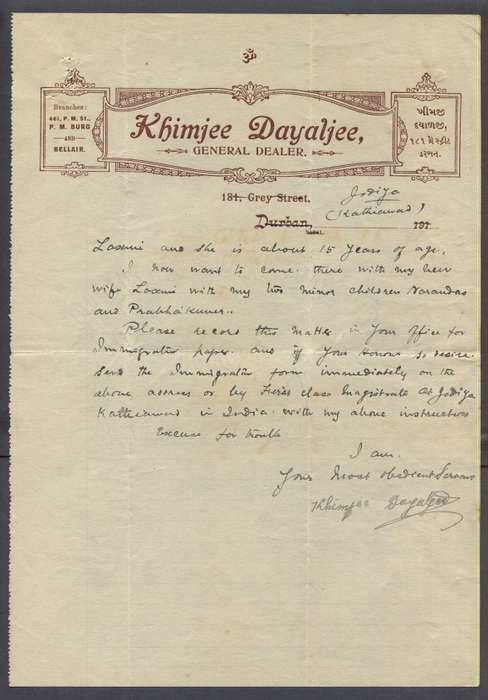 ॐ
Branches:
461, P. M. St.,
P. M. BURG
AND
BELLAIR.
Khimjee Dayaljee,
GENERAL DEALER.
ખીમજી
દયાળજી,
૧૮૧ ગ્રેસ્ટ્રીટ
ડરબન.
181, Grey Street.
Jodiya
(Kathiawad)
Durban, 191
Natal.
Laxmi and she is about 15 years of age.
I now want to come there with my new
wife Laxmi with my two minor children Narandas
and Prabhakuver.
Please record this matter in your office for
Immigration paper. and if your Honour so desire
send the Immigration form immediately on the
above address or by First class Magistrate at Jodiya
Kathiawad in India. with my above instructions
Excuse for trouble
I am.
Your Most obedient Servant
Khimjee Dayaljee